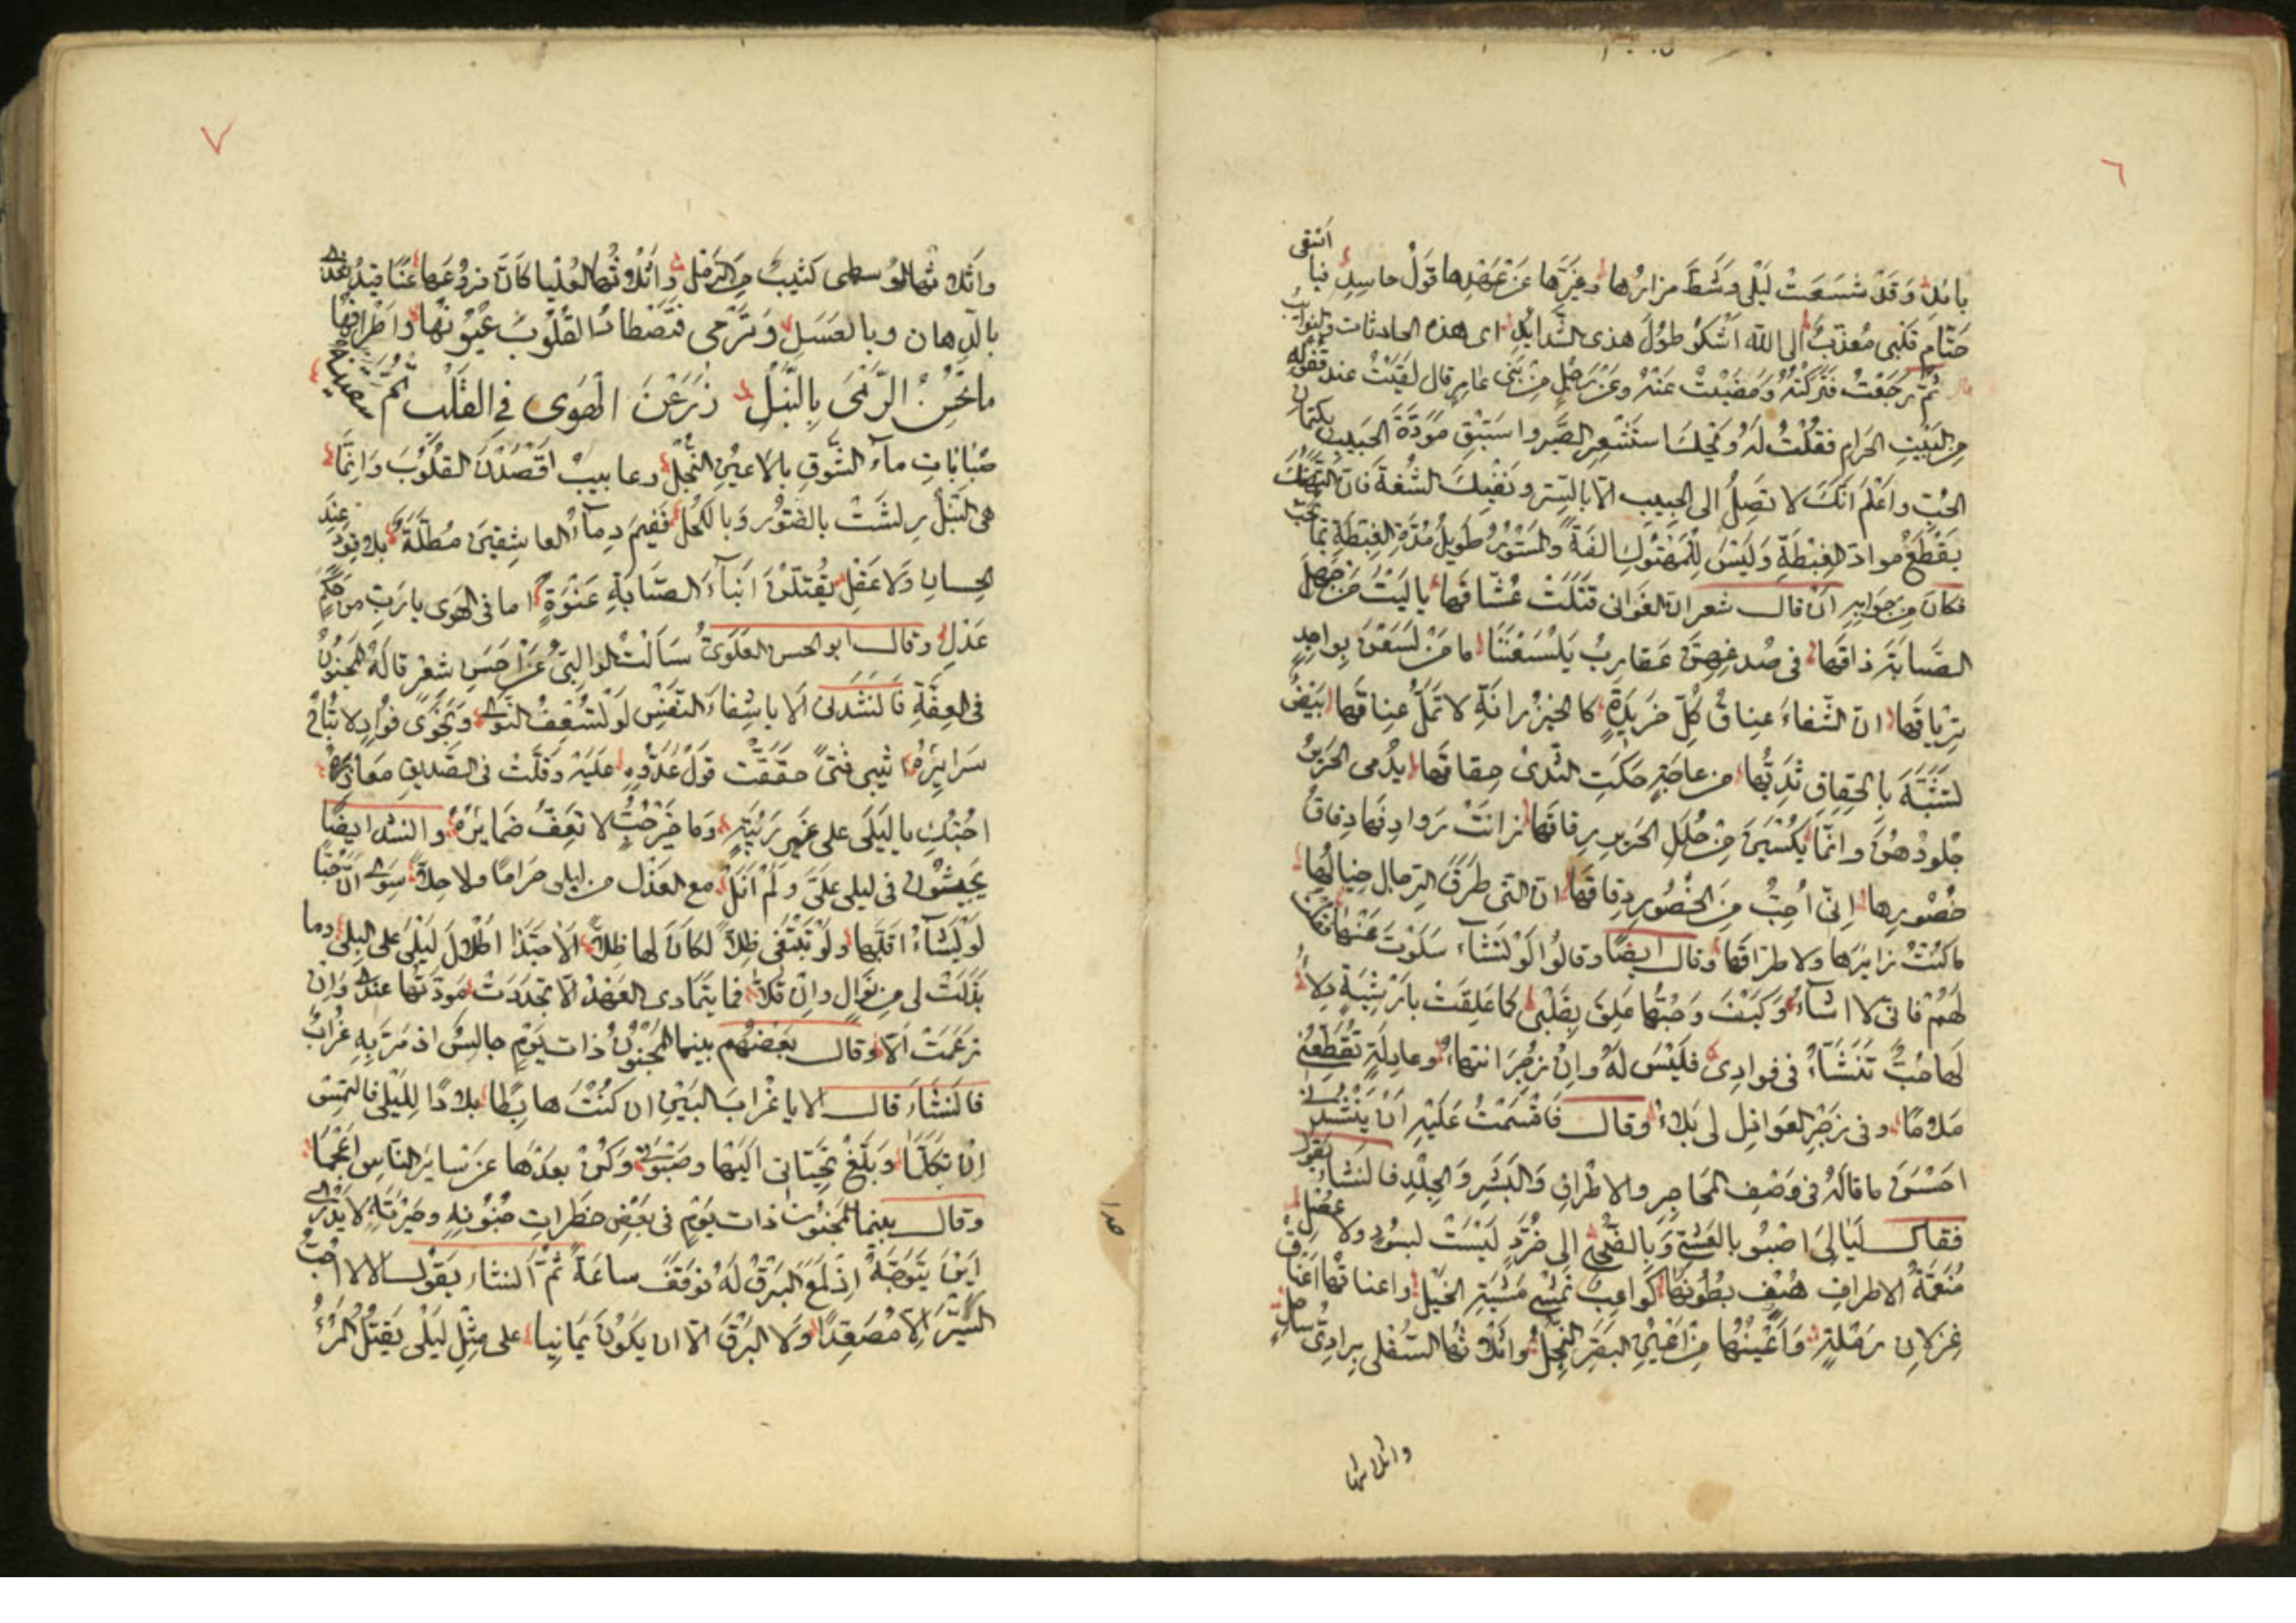 ٦
بامل وقد شسعت ليلى وشط مزارها وغيرها عن عهدها قول حاسد فيا اسفى
حتام قلبى معذب الى الله اشكو طول هذى الشدايد اى هذه الحادثات والنوايب
ثم رجعت فتركته ومضيت عنه وعن رجل من بنى عامر قال لقيت عند قفوله
من البيت الحرام فقلت له ويحك استشعر الصبر واستبق مودة الحبيب بكتمان
الحب واعلم انك لا تصل الى الحبيب الا بالستر ونفيك الشنعة فان التهتك
يقطع مواد الغبطة وليس للمهتوك الفة والمستور طويل مدة الغبطة بما يحب
فكان من جوابه ان قال شعر ان الغوانى قتلت عشاقها ياليت من جهل
الصبابة ذاقها فى صدغهن عقارب يلسعننا ما من لسعن بواجد
ترياقها ان الشفاء عناق كل خريدة كالخيزرانة لا تمل عناقها بيض
تشبه بالحقاق ثديها من عاجة حكت الثدى حقاقها يدمى الحرير
جلودهن وانما يكسين من حلل الحرير رقاقها زانت روادفها دقاق
خصورها انى احب من الخصور دقاقها ان التى طرق الرحال خيالها
ماكنت زايرها ولا طراقها وقال ايضا وقالوا لو تشاء سلوت عنها فقلت
لهم فانى لا اشاء وكيف وحبها علق بقلبى كما علقت بارشية دلاء
لها حب تنشاء فى فوادى فليس له وان زجر انتهاء وعاذلة تقطعنى
ملاما وفى زجر العواذل لى بلاء وقال فاقسمت عليه ان ينشدنى
احسن ما قاله فى وصف المحاجر والاطراف والبشر والجلد فانشاء يقول
فقال ليالى اصبو بالعشى وبالضحى الى خرد ليست بسود ولا عصل
منعمة الاطراف هيف بطونها كواعب تمشى مشية الخيل واعناقها اعناق
غزلان رملة واعينها من اعين البقر النجل واثلاثها السفلى برادى ساحل
واثلاثها
٧
واثلاثها الوسطى كثيب من الرمل واثلاثها العليا كان فروعها عناقيد تغذى
بالدهان وبالعسل وترمى فتصطاد القلوب عيونها واطرافها
ما تحسن الرمى بالنبل زرعن الهوى فى القلب ثم سقينه
صبابات ماء الشوق بالاعين النجل رعابيب اقصدن القلوب وانما
هى النبل ريشت بالفتور وبالكحل ففيم دماء العاشقين مطلة بلا قود عند
الحسان ولا عقل يقتلن ابناء الصبابة عنوة اما فى الهوى يارب من حكم
عدل وقال ابو الحسن العلوى سالت الوالبى عن احسن شعر قاله المجنون
فى العفة فانشدنى الا ياشفاء النفس لو تسعف النوى ونجوى فواد لا تباح
سرايره اثيبى فتى حققت قول عدوه عليه وقلت فى الصديق معاذره
احبك ياليلى على غير ريبة وما خير حب لا تعف ضمايره وانشد ايضا
يجيشون فى ليلى على ولم انل مع العذل من ليلى حراما ولا حلا سوى ان حبا
لو يشاء اقلها ولو تبتغى ظلا لكان لها ظلا الا حبذا اطلال ليلى على البلى وما
بذلت لى من نوال وان قلا فما يتمادى العهد الا تجددت مودتها عندى وان
زعمت الا وقال بعضهم بينما المجنون ذات يوم جالس اذ مر به غراب
فانشاء قال الا ياغراب البين ان كنت هابطا بلادا لليلى فالتمس
ان تكلما وبلغ تحياتى اليها وصبوتى وكن بعدها عن ساير الناس اعجما
وقال بينما المجنون ذات يوم فى بعض خطرات جنونه وحيرته لا يدرى
اين يتوجه اذ لمع البرق له فوقف ساعة ثم انشاء يقول الا لا احب
السير الا مصعدا ولا البرق الا ان يكون يمانيا على مثل ليلى يقتل المرء